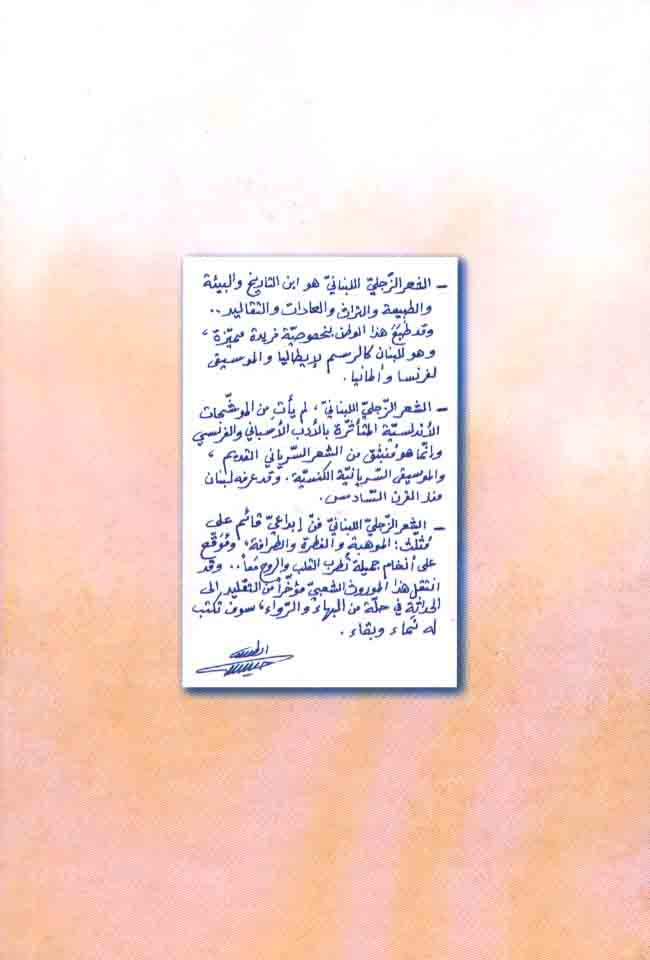 - الشعر الزّجليّ اللبنانيّ هو ابن التاريخ والبيئة
والطبيعة والتراث والعادات والتقاليد..
وقد طبَعَ هذا الوطن بخصوصيّة فريدة مميّزة،
وهو للبنان كالرسم لإيطاليا والموسيقى
لفرنسا وألمانيا.
- الشعر الزّجليّ اللبنانيّ، لم يأتِ من الموشّحات
الأندلسيّة المتأثّرة بالأدب الأسباني والفرنسي
وإنّما هو مُنبثق من الشعر السّرياني القديم،
والموسيقى السّريانيّة الكنسيّة. وقد عرفه لبنان
منذ القرن السّادس.
- الشعر الزّجليّ اللبنانيّ فنّ إبداعيّ قائم على
مُثلّث: الموهبة والفطرة والظرافة، ومُوقّع
على أنغام جميلة تُطرب القلب والروح مَعاً.. وقد
انتقل هذا الموروث الشعبيّ مؤخّراً من التقليد الى
الحداثة في حلّة من البهاء والرّواء، سوف تكتب
له نماء وبقاء.